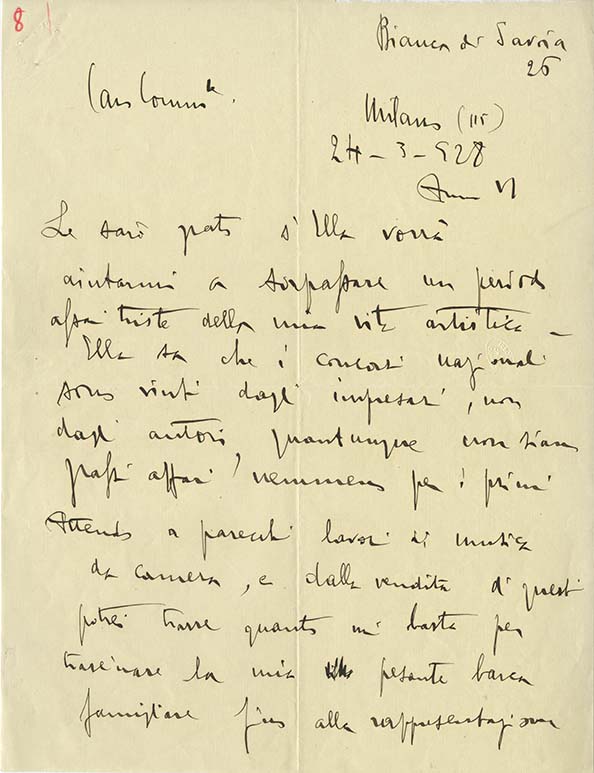 8
Bianca di Savoia
26
Caro Comm.
Milano (115)
24 - 3 - 928
Anno VI
Le sarò grato s'Ella vorrà
aiutarmi a sorpassare un periodo
assai triste della mia vita artistica -
Ella sa che i concorsi nazionali
sono vinti dagli impresari, non
dagli autori, quantunque non siano
grassi affari nemmeno per i primi
Attendo a parecchi lavori di musica
da camera, e dalla vendita di questi
potrei trarre quanto mi basta per
trascinare la mia pesante barca
famigliare fino alla rappresentazione